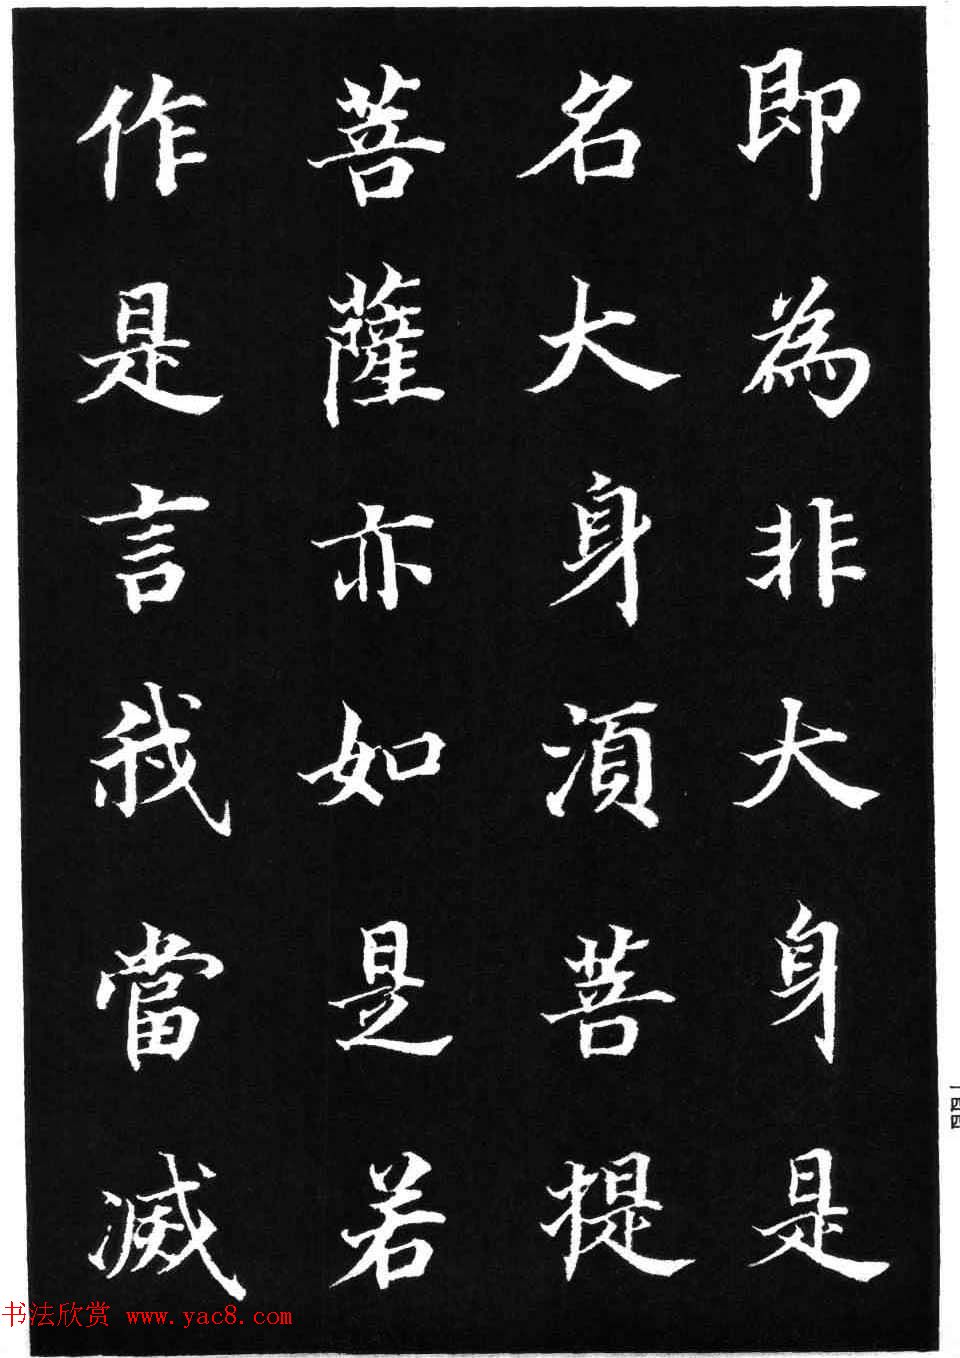 即為非大身是
名大身湏菩提
菩薩亦如是若
作是言我當滅
一四四
书法欣赏 www.yac8.com